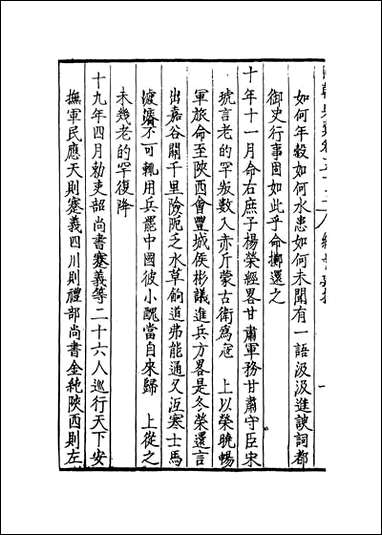 如何年穀如何水患如何未聞有一語汲汲進諛詞都
御史行事固如此乎命擲還之
十年十一月命右庶子楊榮經畧甘肅軍務甘肅守臣宋
琥言老的罕叛數人赤斤蒙古衛為寇 上以榮曉暢
軍旅命至陜西會豐城侯彬議進兵方畧是冬榮還言
出嘉谷關千里險阨乏水草餉道弗能通又沍寒士馬
疲瘠不可輒用兵罷中國彼小醜當自來歸 上從之
未幾老的罕復降
十九年四月勅吏部尚書蹇義等二十六人巡行天下安
撫軍民應天則蹇義四川則禮部尚書金純陜西則左